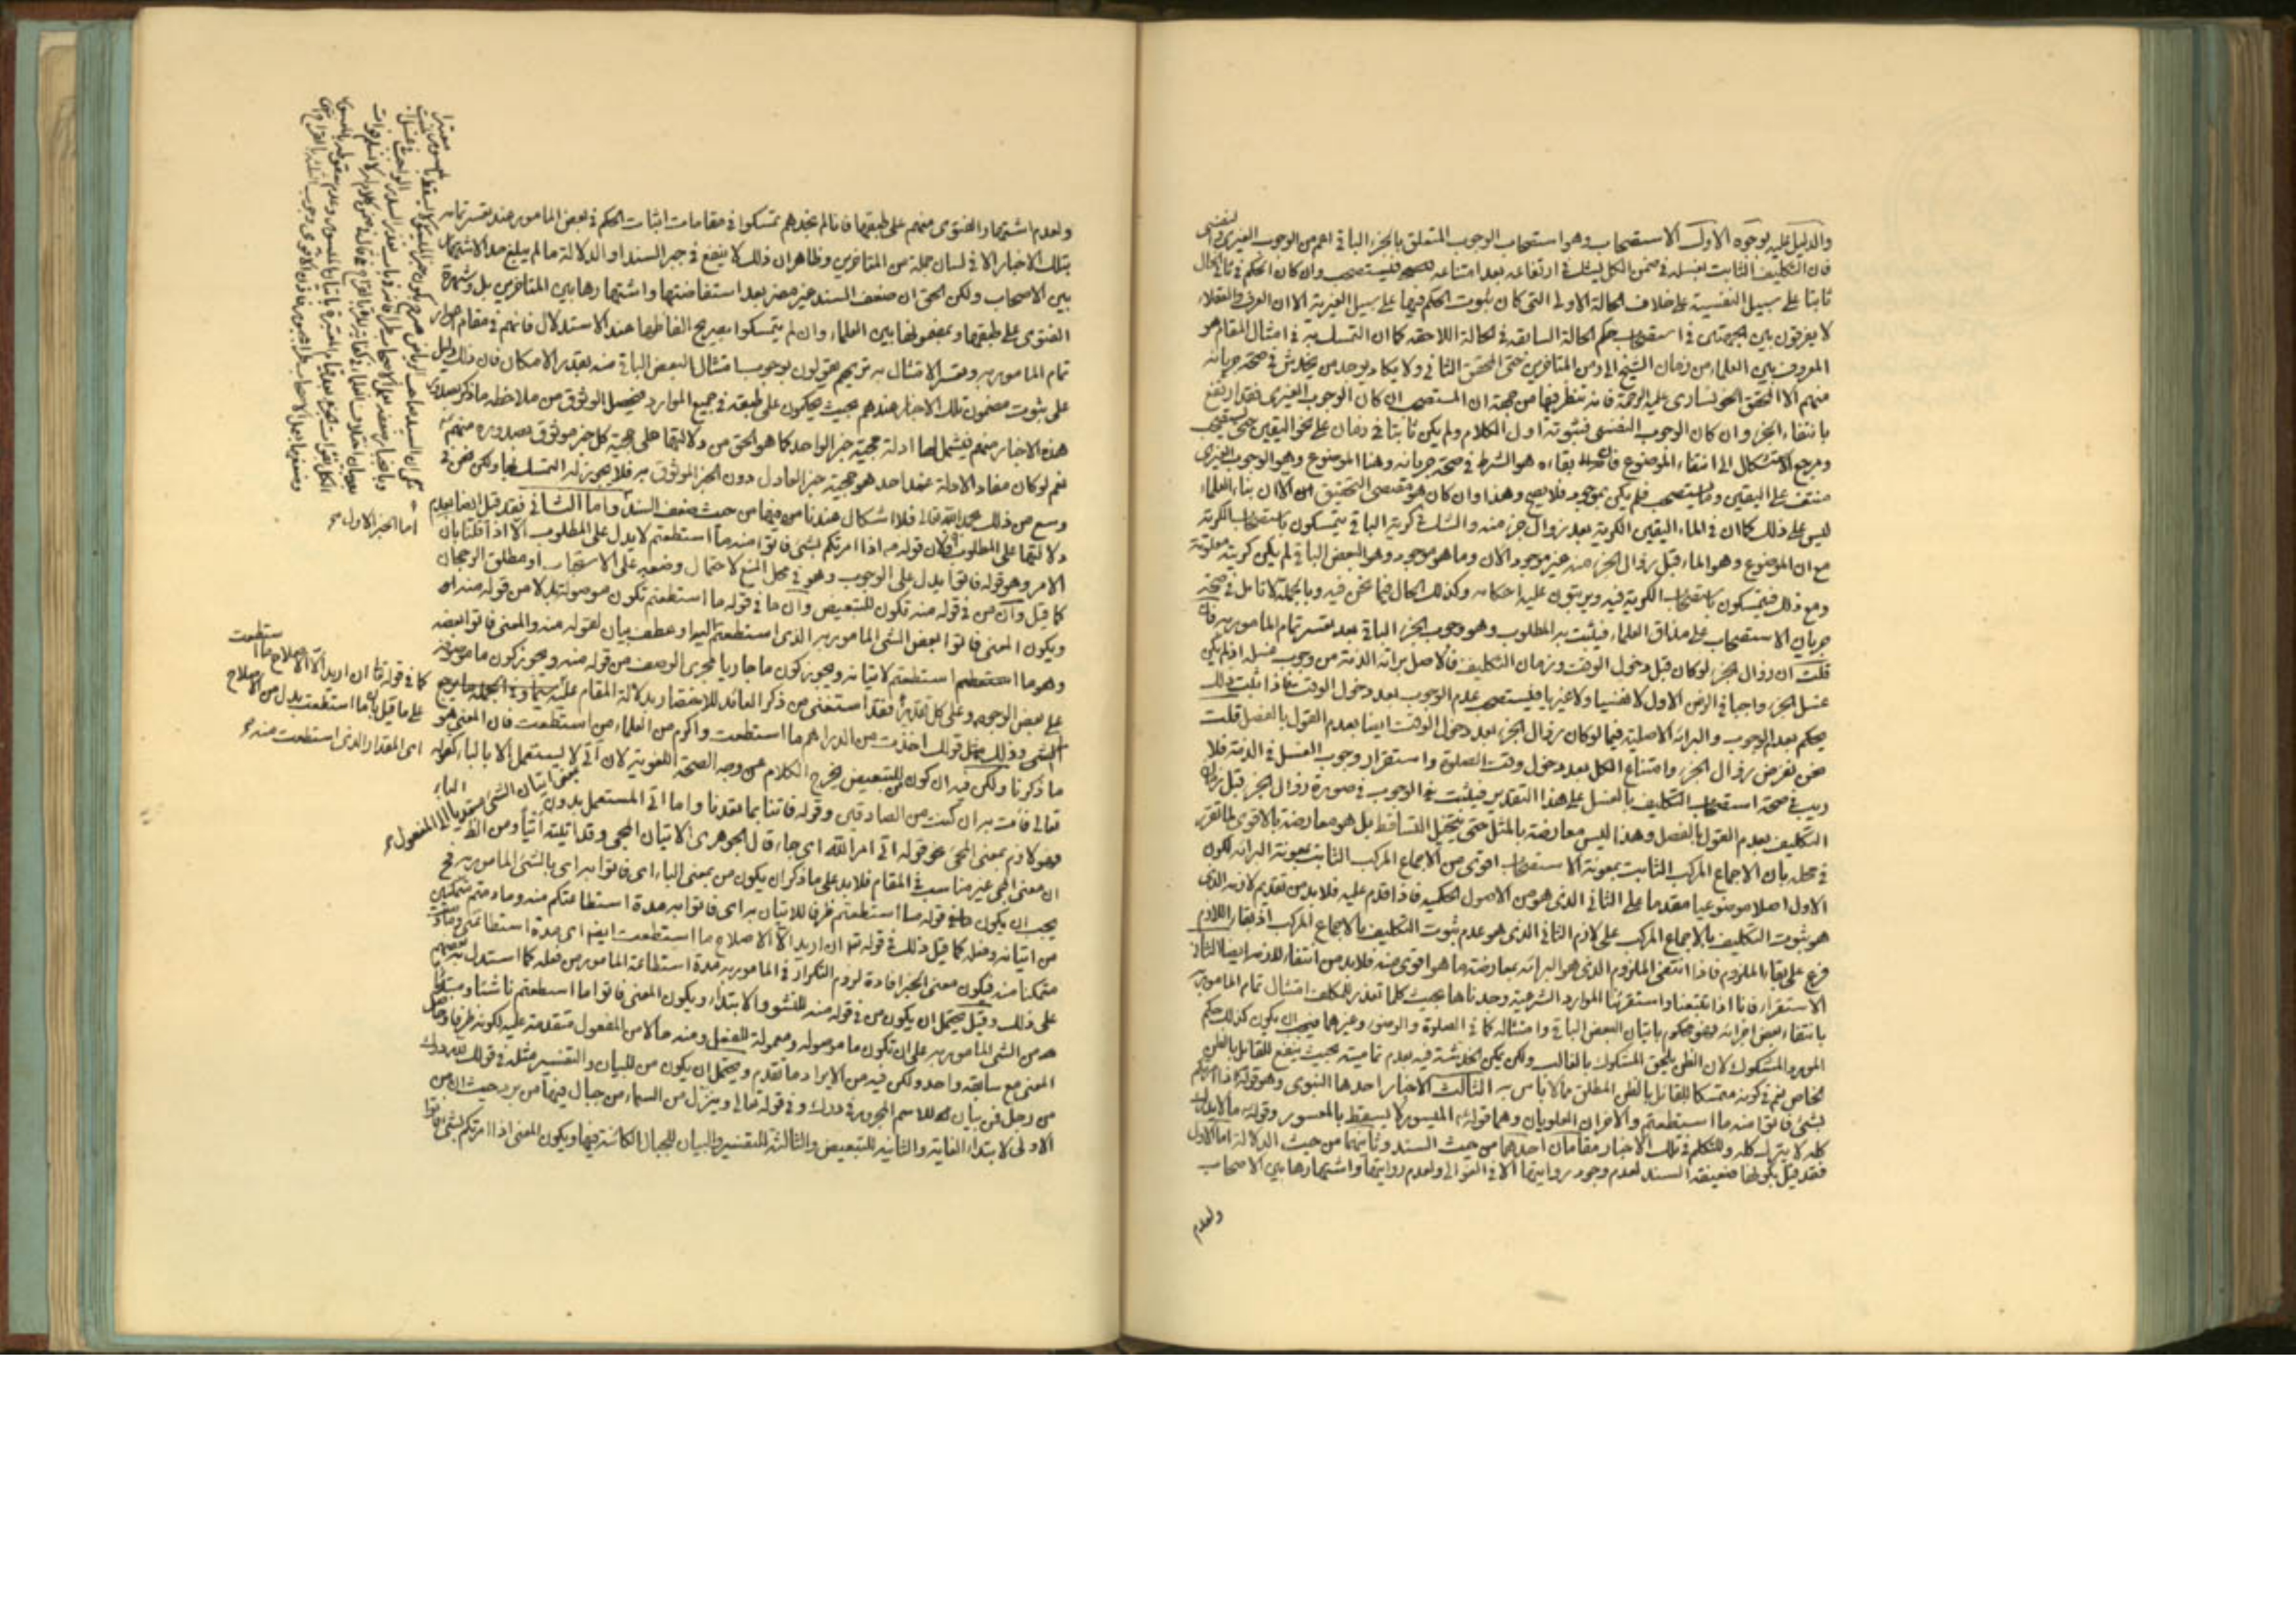 والدليل عليه بوجوه الاول الاستصحاب وهو استصحاب الوجوب المتعلق بالجزء الباقي اعم من الوجوب الغيري والنفسي
فان التكليف الثابت بغسله في ضمن الكل يشك في ارتفاعه بعد امتناعه فيستصحب وان كان الحكم في ثاني الحال
ثابتا على سبيل النفسية على خلاف الحالة الاولى التي كان ثبوت الحكم فيها على سبيل الغيرية الا ان العرف والعقلاء
لا يفرقون بين الجهتين في استصحاب حكم الحالة السابقة في الحالة اللاحقة كما ان التمسك به في امثال المقام هو
المعروف بين العلماء من زمان الشيخ الى زمن المتاخرين حتى المحقق الثاني ولا يكاد يوجد من يخدش في صحة جريانه
منهم الا المحقق الخونساري عليه الرحمة فانه تنظر فيها من جهة ان المستصحب ان كان الوجوب الغيري فقد ارتفع
بانتفاء الجزء وان كان الوجوب النفسي فثبوته اول الكلام ولم يكن ثابتا في زمان على نحو اليقين حتى يستصحب
ومرجع الاشكال الى انتفاء الموضوع فان بقاءه هو الشرط في صحة جريانه وهنا الموضوع وهو الوجوب الغيري
منتف على اليقين وما يستصحب فلم يكن بموجود فلا يصح وهذا وان كان هو مقتضى التحقيق الا ان بناء العلماء
ليس على ذلك كما ان في الماء اليقين الكرية بعد زوال جزء منه والشك في كرية الباقي يتمسكون باستصحاب الكرية
مع ان الموضوع وهو الماء قبل زوال الجزء منه غير موجود الان وما هو موجود وهو البعض الباقي لم يكن كريته معلومة
ومع ذلك فيتمسكون باستصحاب الكرية فيه ويرتبون عليه احكامه وكذلك الحال فيما نحن فيه وبالجملة لا تامل في صحة
جريان الاستصحاب على مذاق العلماء فيثبت به المطلوب وهو وجوب الجزء الباقي بعد تعسر تمام المامور به فان
قلت ان زوال الجزء لو كان قبل دخول الوقت وزمان التكليف فالاصل برائة الذمة من وجوب غسله اذ لم يكن
غسل الجزء واجبا في الزمن الاول لا نفسيا ولا غيريا فيستصحب عدم الوجوب بعد دخول الوقت فاذا ثبت ذلك
يحكم بعدم الوجوب والبرائة الاصلية فيما لو كان زوال الجزء بعد دخول الوقت ايضا بعدم القول بالفصل قلت
نحن نفرض زوال الجزء وامتناع الكل بعد دخول وقت الصلوة واستقرار وجوب الغسل في الذمة فلا
ريب في صحة استصحاب التكليف بالغسل على هذا التقدير فيثبت الوجوب في صورة زوال الجزء قبل زمان
التكليف بعدم القول بالفصل وهذا ليس معارضة بالمثل حتى يتخيل التساقط بل هو معارضة بالاقوى لما تقرر
في محله بان الاجماع المركب الثابت بمعونة الاستصحاب اقوى من الاجماع المركب الثابت بمعونة البرائة لكون
الاول اصلا موضوعيا مقدما على الثاني الذي هو من الاصول الحكمية فاذا قدم عليه فلا بد من تقديم لازمه الذي
هو ثبوت التكليف بالاجماع المركب على لازم الثاني الذي هو عدم ثبوت التكليف بالاجماع المركب اذ بقاء اللازم
فرع على بقاء الملزوم فاذا انتفى الملزوم الذي هو البرائة بمعارضته بما هو اقوى منه فلا بد من انتفاء لازمه ايضا الثاني
الاستقراء فانا اذا تتبعنا واستقرئنا الموارد الشرعية وجدناها بحيث كلما تعذر للمكلف امتثال تمام المامور به
بانتفاء بعض اجزائه فهو محكوم باتيان البعض الباقي وامتثاله كما في الصلوة والوضوء وغيرهما فيجب ان يكون كذلك حكم
المورد المشكوك لان الظن يلحق المشكوك بالغالب ولكن يمكن الخدشة فيه بعدم تماميته بحيث ينفع للقائل بالظن
الخاص نعم في كونه متمسكا للقائل بالظن المطلق مما لا باس به الثالث الاخبار احدها النبوي وهو قوله اذا امرتكم
بشئ فاتوا منه ما استطعتم والاخران العلويان وهما قوله الميسور لا يسقط بالمعسور وقوله ما لا يدرك
كله لا يترك كله وللتكلم في تلك الاخبار مقامان احدهما من حيث السند وثانيهما من حيث الدلالة اما الاول
فقد قيل بكونها ضعيفة السند لعدم وجود روايتها الا في الغوالي ولعدم روايتها واشتهارها بين الاصحاب
ولعدم
ولعدم اشتهار الفتوى منهم على طبقها فانا لم نجدهم تمسكوا في مقامات اثبات الحكم في بعض المامور عند تعسر تمامه
بتلك الاخبار الا في لسان جملة من المتاخرين وظاهر ان ذلك لا ينفع في جبر السند او الدلالة ما لم يبلغ حد الاشتهار
بين الاصحاب ولكن الحق ان ضعف السند غير مضر بعد استفاضتها واشتهارها بين المتاخرين بل وشهرة
الفتوى على طبقها وبمضمونها بين العلماء وان لم يتمسكوا بصريح الفاظها عند الاستدلال فانهم في مقام
تمام المامور به وتعسر الامتثال به تريهم يقولون بوجوب امتثال البعض الباقي منه بقدر الامكان فان ذلك دليل
على ثبوت مضمون تلك الاخبار عندهم بحيث يحكمون على طبقه في جميع الموارد فيحصل الوثوق من ملاحظة ما ذكر بصدور
هذه الاخبار منهم فيشملها ادلة حجية خبر الواحد كما هو الحق من دلالتها على حجية كل خبر موثوق بصدوره منهم
نعم لو كان مفاد الادلة عند احد هو حجية خبر العادل دون الخبر الموثوق به فلا يجوز له التمسك بها ولكن نحن في
وسع من ذلك بحمد الله تعالى فلا اشكال عندنا من فيها من حيث ضعف السند واما الثاني فقد قيل ايضا بعدم
دلالتها على المطلوب فلان قوله اذا امرتكم بشئ فاتوا منه ما استطعتم لا يدل على المطلوب الا اذا قلنا بان
الامر وهو قوله فاتوا يدل على الوجوب وهو في محل المنع لاحتمال وضعه على الاستحباب او مطلق الرجحان
كما قيل وان من في قوله منه تكون للتبعيض وان ما في قوله ما استطعتم تكون موصولة بدلا من قوله منه
ويكون المعنى فاتوا بعض الشئ المامور به الذي استطعتم اليه او عطف بيان لقوله منه والمعنى فاتوا بعضه
وهو ما استطعتم لاتيانه ويجوز كون ما جاريا مجرى الوصف من قوله منه ويجوز كون ما موصوفة
على بعض الوجوه وعلى كل تقدير فقد استغنى من ذكر العائد للاختصار بدلالة المقام عليه
الشئ وذلك مثل قولك اخذت من الدراهم ما استطعت واكرم من العلماء من استطعت فان المعنى هو
ما ذكرنا ولكن فيه ان كون من للتبعيض يخرج الكلام عن وجه الصحة اللغوية لان اتى لا يستعمل الا بالباء كقوله
تعالى فات به ان كنت من الصادقين وقوله فاتنا بما تعدنا واما اتى المستعمل بدون
فهو لازم بمعنى المجئ نحو قوله اتى امر الله اى جاء قال الجوهري الاتيان المجئ وقد اتيته اتيا ومن الظ
ان معنى المجئ غير مناسب في المقام فلا بد على ما ذكر ان يكون من بمعنى الباء اى فاتوا به اى بالشئ المامور به فح
يجب ان يكون ما في قوله ما استطعتم ظرفا للاتيان به اى فاتوا به مدة استطاعتكم منه وما دمتم متمكنين
من اتيانه وفعله كما قيل ذلك في قوله تعالى ان اريد الا الاصلاح ما استطعت ايضا اى مدة استطاعتي وما دمت
متمكنا منه فيكون معنى الخبر افادة لزوم التكرار في المامور به مدة استطاعة المامور من فعله كما استدل به بعضهم
على ذلك وقيل يحتمل ان يكون من في قوله منه للنشو والابتداء ويكون المعنى فاتوا ما استطعتم ناشئا ومبتدأ
من الشئ المامور به على ان تكون ما موصولة ومعمولة للفعل ومنه حالا من المفعول متقدمة عليه لكونه ظرفا وحاصل
المعنى مع سابقه واحد ولكن فيه من الايراد ما تقدم ويحتمل ان يكون من للبيان والتفسير مثله في قولك لله درك
من رجل فمن بيان للاسم المجرور في درك وفي قوله تعالى وينزل من السماء من جبال فيها من برد حيث ان من
الاولى لابتداء الغاية والثانية للتبعيض والثالثة للتفسير والبيان للجبال الكائنة فيها ويكون المعنى اذا امرتكم بشئ فاتوا
اما الخبر الاول
كما في قوله تعالى ان اريد الا الاصلاح ما استطعت
على ما قيل بان ما استطعت بدل من الاصلاح
اى المقدار الذي استطعت منه
الباء
بمعنى اتيان الشئ متعديا الى المفعول